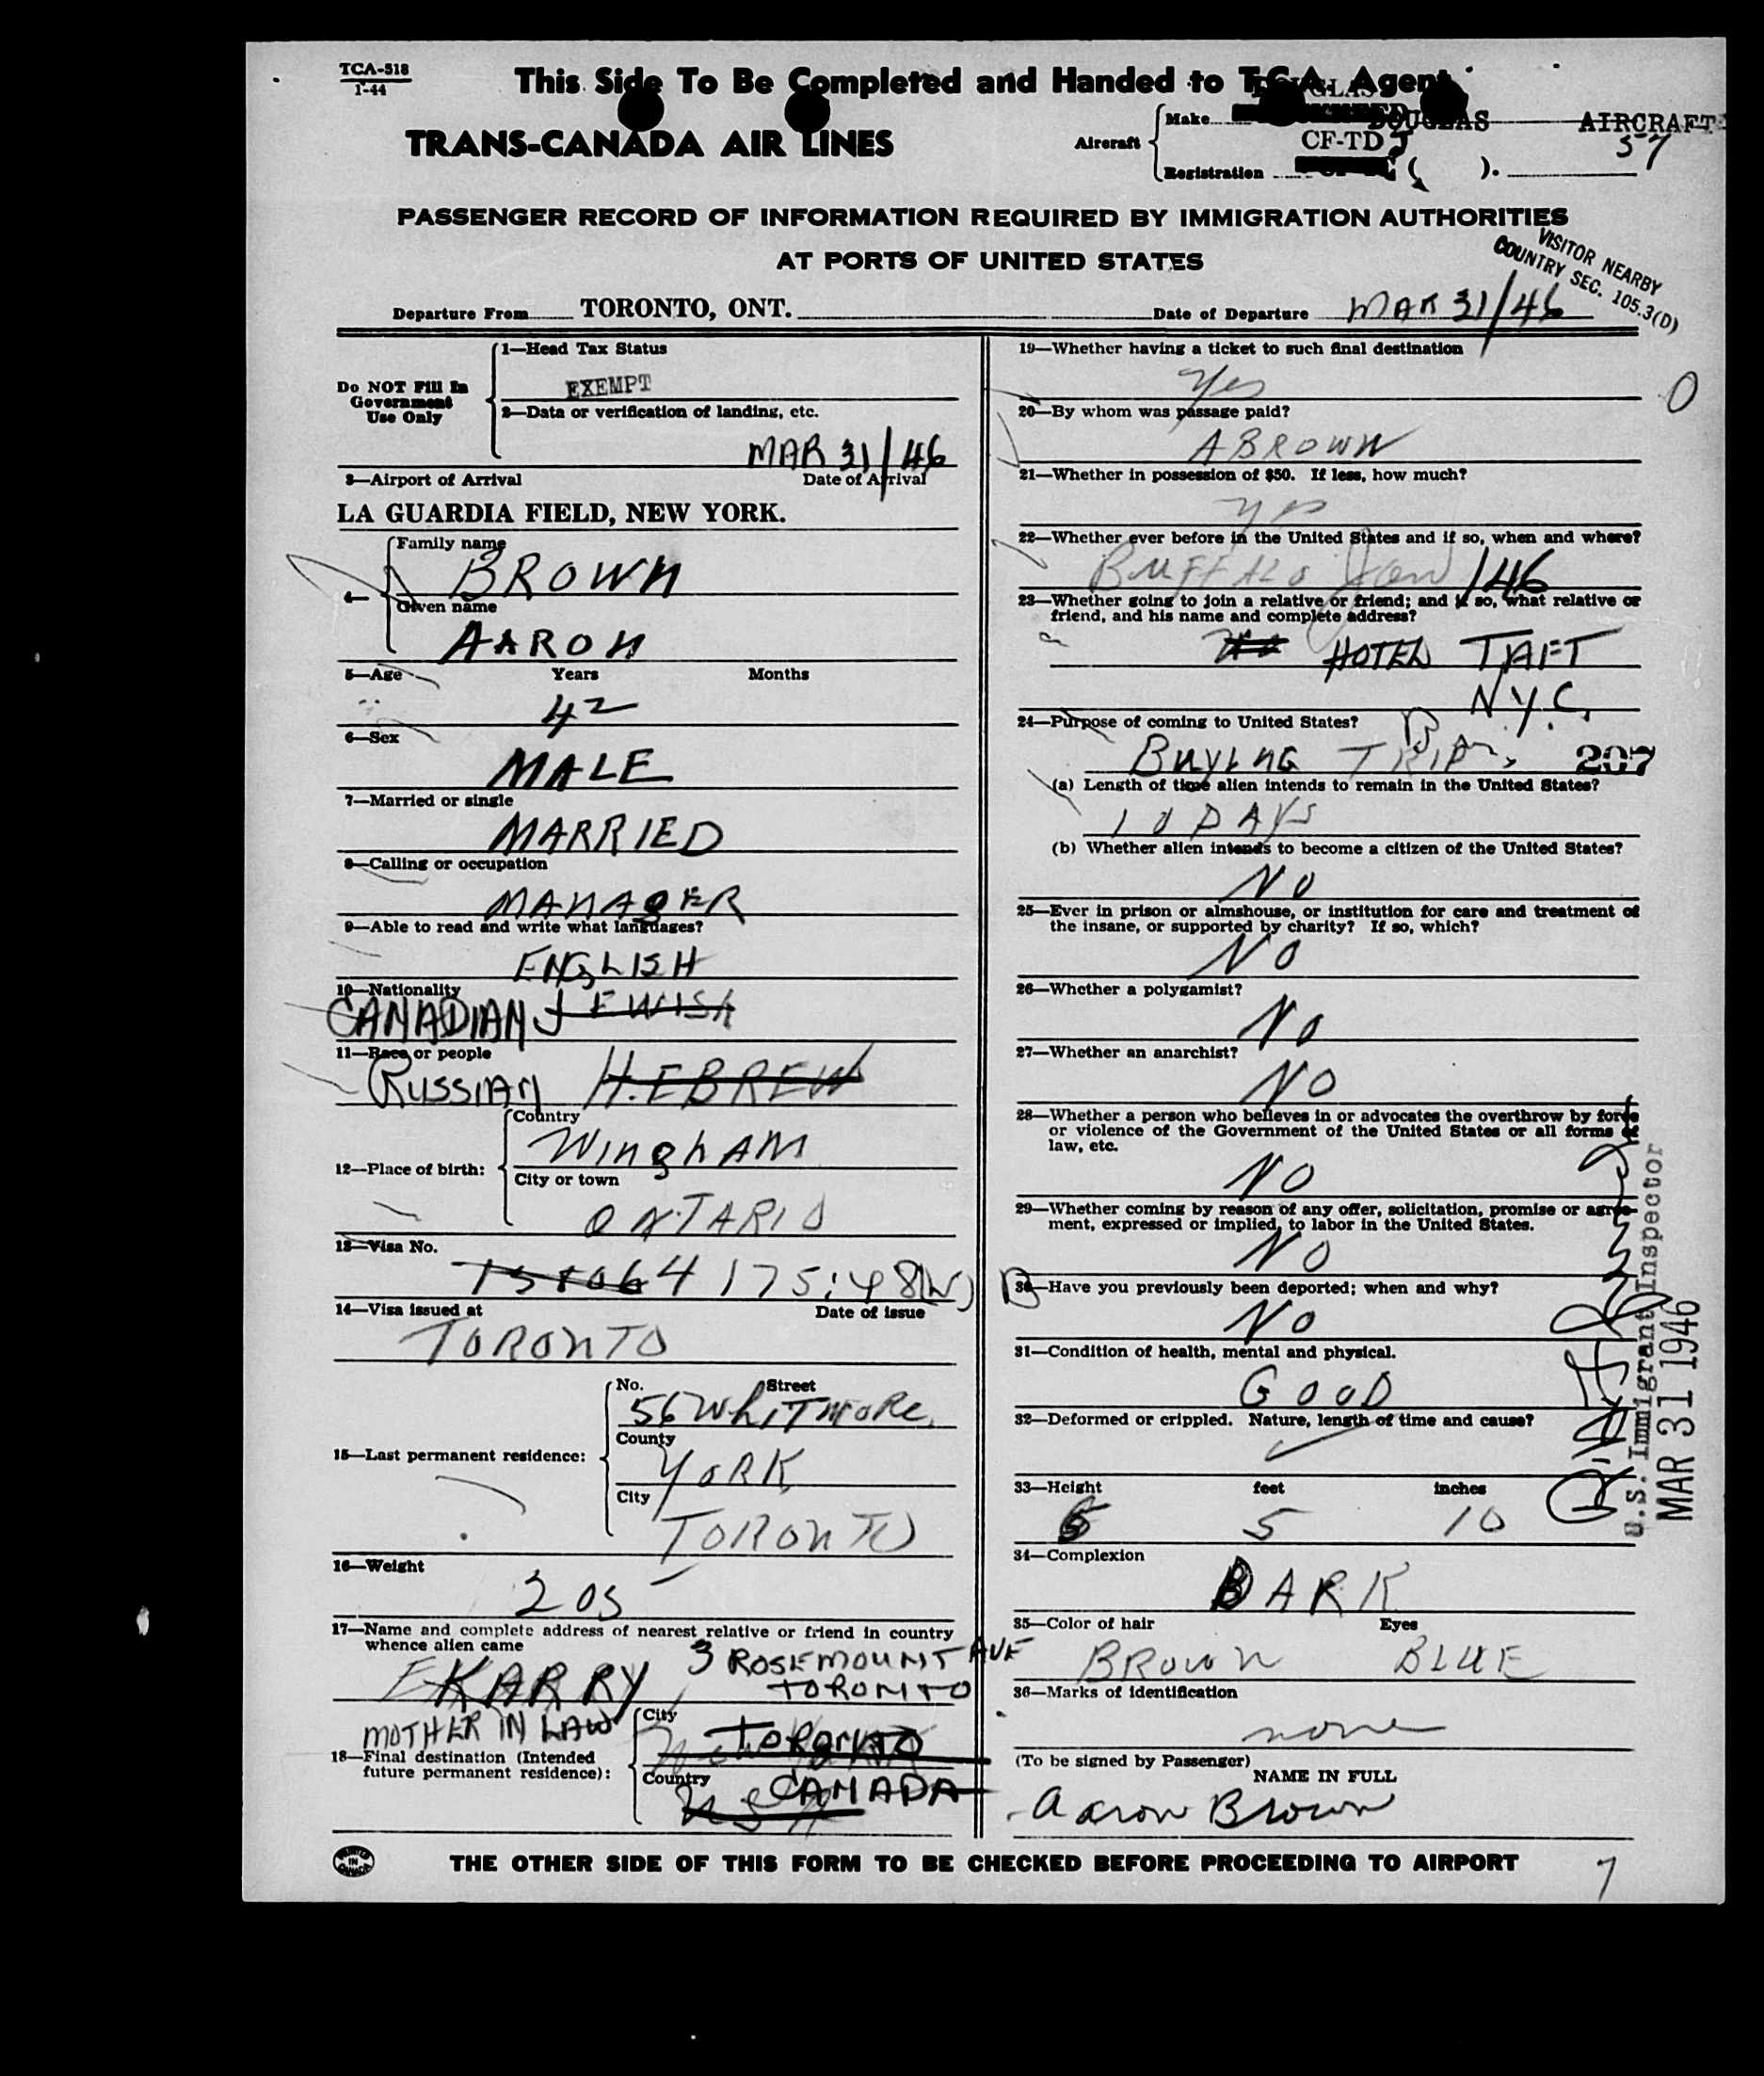 TCA-518
1-44
This Side To Be Completed and Handed to T.C.A. Agent
TRANS-CANADA AIR LINES
Aircraft
Make
DOUGLAS AIRCRAFT
CF-TDJ
57
Registration ( ).
PASSENGER RECORD OF INFORMATION REQUIRED BY IMMIGRATION AUTHORITIES
AT PORTS OF UNITED STATES
VISITOR NEARBY
COUNTRY SEC. 105.3(D)
Departure From TORONTO, ONT.
Date of Departure MAR 31/46
Do NOT Fill In
Government
Use Only
1—Head Tax Status
EXEMPT
2—Data or verification of landing, etc.
MAR 31/46
3—Airport of Arrival Date of Arrival
LA GUARDIA FIELD, NEW YORK.
4—
Family name
BROWN
Given name
AARON
5—Age Years Months
42
6—Sex
MALE
7—Married or single
MARRIED
8—Calling or occupation
MANAGER
9—Able to read and write what languages?
ENGLISH
10—Nationality
CANADIAN JEWISH
11—Race or people
RUSSIAN HEBREW
12—Place of birth:
Country
WINGHAM
City or town
ONTARIO
13—Visa No.
175:48(W)
14—Visa issued at Date of issue
TORONTO
15—Last permanent residence:
No. Street
56 WHITMORE
County
YORK
City
TORONTO
16—Weight
205
17—Name and complete address of nearest relative or friend in country
whence alien came
KARRY 3 ROSEMOUNT AVE
TORONTO
MOTHER IN LAW
18—Final destination (Intended
future permanent residence):
City
TORONTO
Country
CANADA
USA
19—Whether having a ticket to such final destination
Yes
0
20—By whom was passage paid?
A BROWN
21—Whether in possession of $50. If less, how much?
yes
22—Whether ever before in the United States and if so, when and where?
BUFFALO Jan/46
23—Whether going to join a relative or friend; and if so, what relative or
friend, and his name and complete address?
HOTEL TAFT
N.Y.C.
24—Purpose of coming to United States?
BUYING TRIP
207
(a) Length of time alien intends to remain in the United States?
10 DAYS
(b) Whether alien intends to become a citizen of the United States?
NO
25—Ever in prison or almshouse, or institution for care and treatment of
the insane, or supported by charity? If so, which?
NO
26—Whether a polygamist?
NO
27—Whether an anarchist?
NO
28—Whether a person who believes in or advocates the overthrow by force
or violence of the Government of the United States or all forms of
law, etc.
NO
29—Whether coming by reason of any offer, solicitation, promise or agree-
ment, expressed or implied, to labor in the United States.
NO
30—Have you previously been deported; when and why?
NO
31—Condition of health, mental and physical.
GOOD
32—Deformed or crippled. Nature, length of time and cause?
33—Height feet inches
5 10
34—Complexion
DARK
35—Color of hair Eyes
BROWN BLUE
36—Marks of identification
none
(To be signed by Passenger)
NAME IN FULL
Aaron Brown
U.S. Immigrant Inspector
MAR 31 1946
PRINTED IN CANADA
THE OTHER SIDE OF THIS FORM TO BE CHECKED BEFORE PROCEEDING TO AIRPORT
7